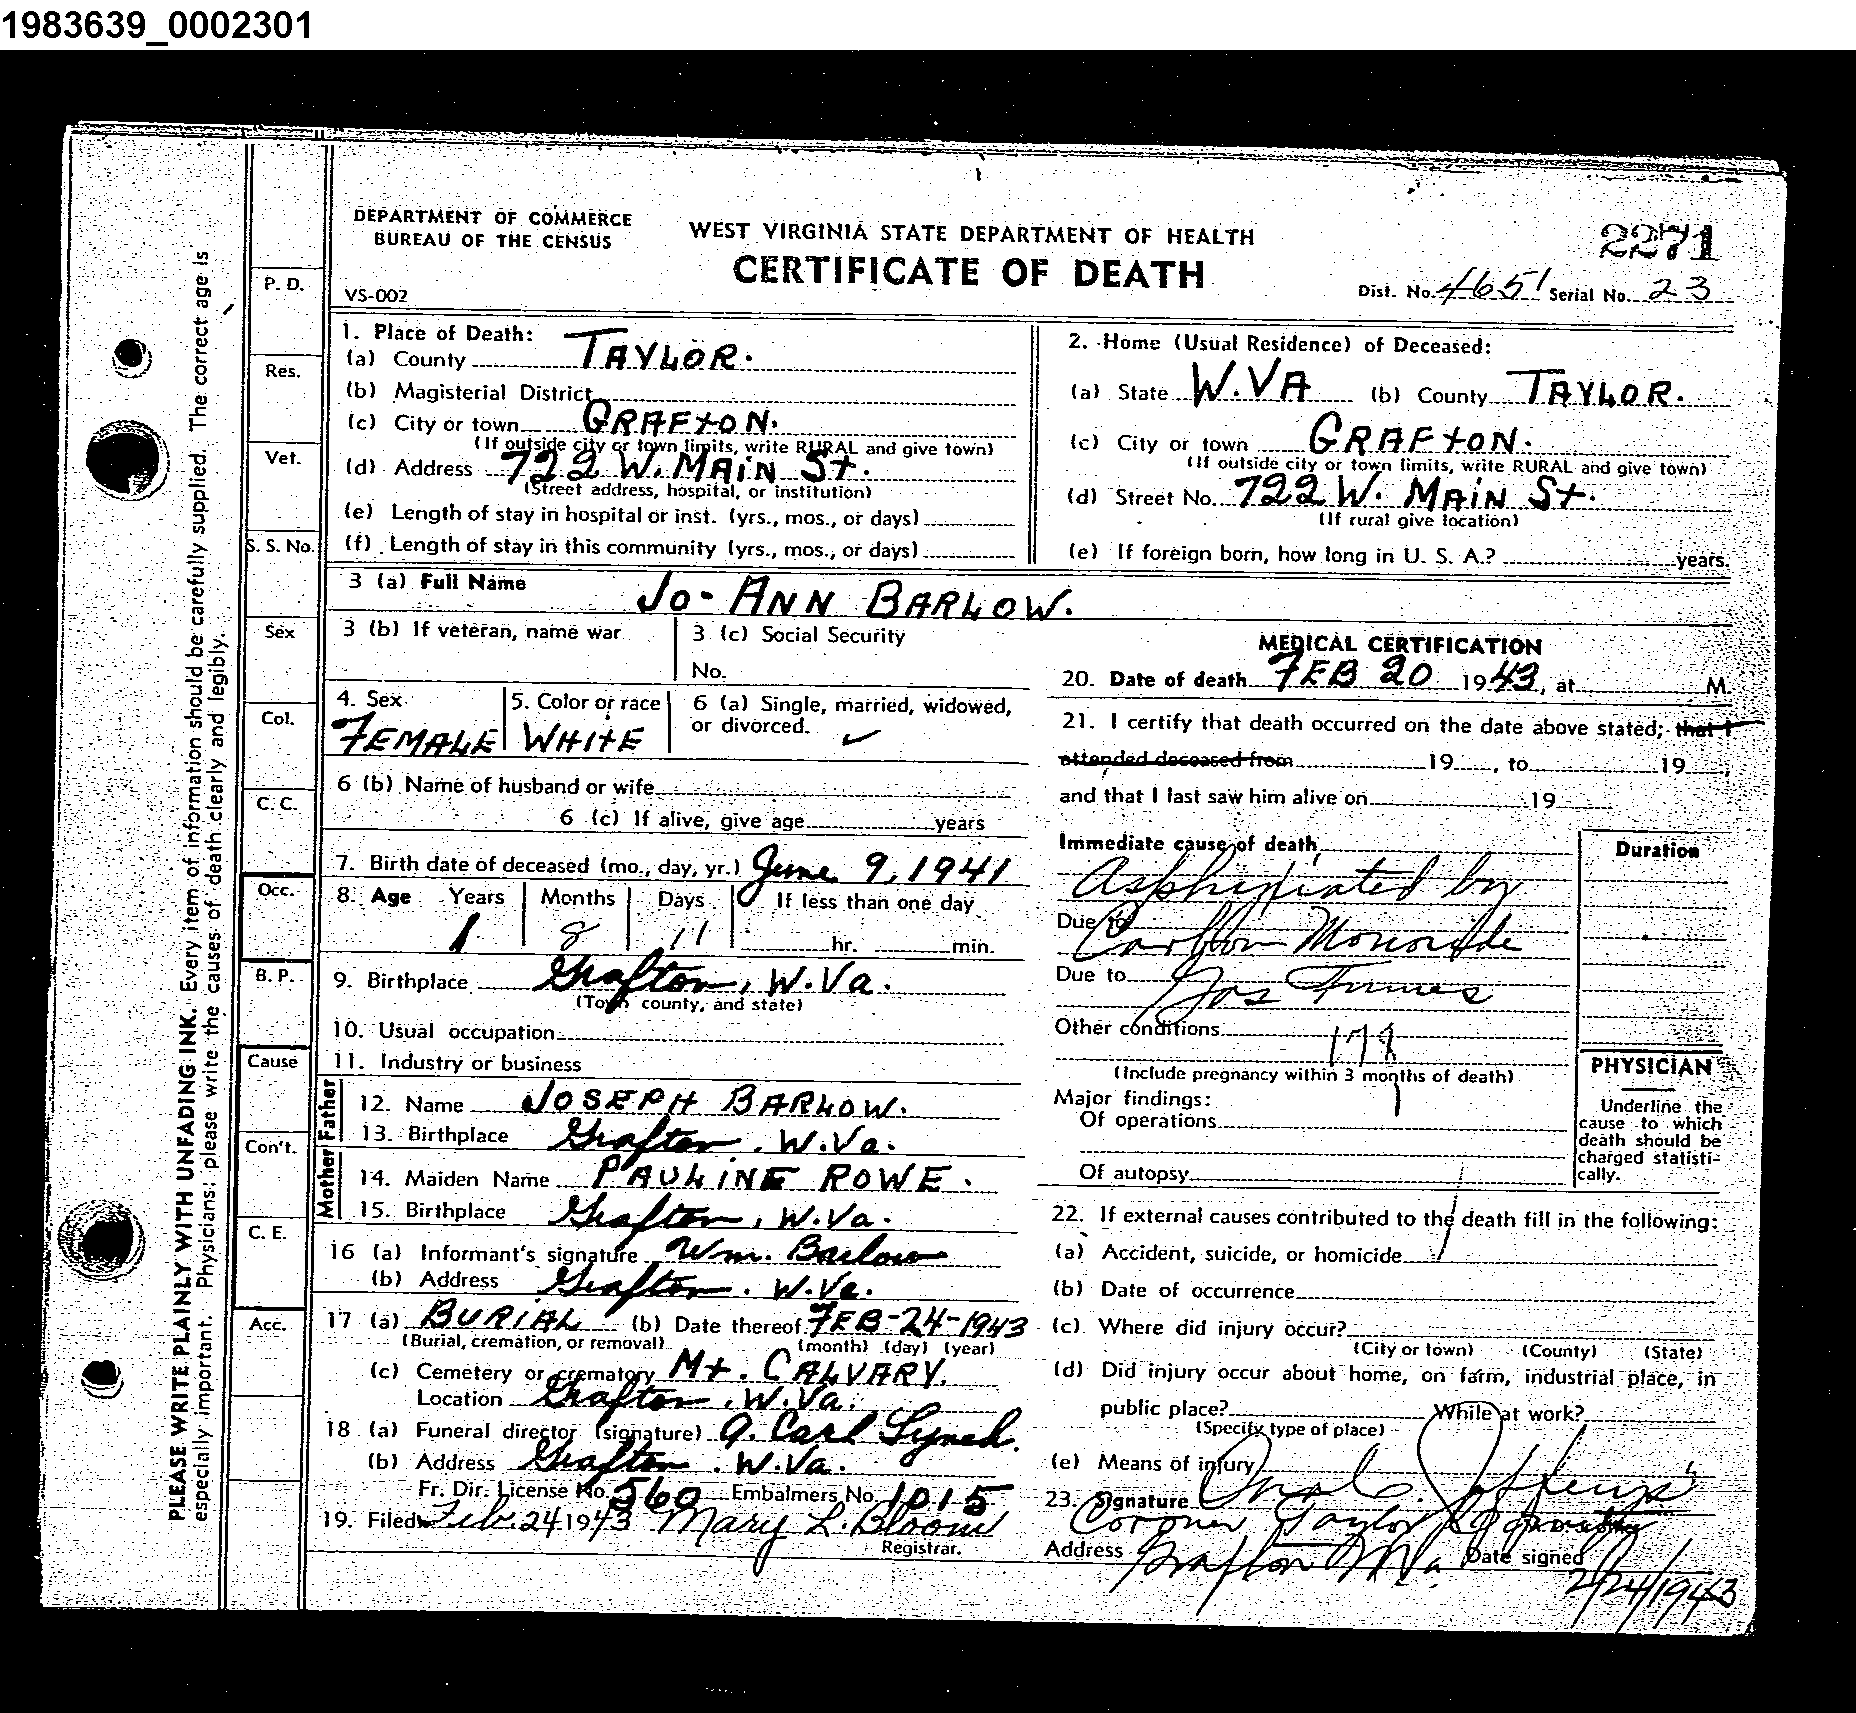 1983639_0002301
DEPARTMENT OF COMMERCE
BUREAU OF THE CENSUS
WEST VIRGINIA STATE DEPARTMENT OF HEALTH
CERTIFICATE OF DEATH
2271
VS-002
Dist. No. 4651 Serial No. 23
PLEASE WRITE PLAINLY WITH UNFADING INK. Every item of information should be carefully supplied. The correct age is
especially important. Physicians: please write the causes of death clearly and legibly.
P. D.
Res.
Vet.
S. S. No.
Sex
Col.
C. C.
Occ.
B. P.
Cause
Con't.
C. E.
Acc.
1. Place of Death:
(a) County TAYLOR.
(b) Magisterial District
(c) City or town GRAFTON.
(If outside city or town limits, write RURAL and give town)
(d) Address 722 W. MAIN St.
(Street address, hospital, or institution)
(e) Length of stay in hospital or inst. (yrs., mos., or days)
(f) Length of stay in this community (yrs., mos., or days)
2. Home (Usual Residence) of Deceased:
(a) State W.VA (b) County TAYLOR.
(c) City or town GRAFTON.
(If outside city or town limits, write RURAL and give town)
(d) Street No. 722 W. MAIN St.
(If rural give location)
(e) If foreign born, how long in U. S. A.? years.
3 (a) Full Name JO-ANN BARLOW.
3 (b) If veteran, name war
3 (c) Social Security
No.
4. Sex FEMALE
5. Color or race WHITE
6 (a) Single, married, widowed,
or divorced. ✓
6 (b) Name of husband or wife
6 (c) If alive, give age years
7. Birth date of deceased (mo., day, yr.) June 9, 1941
8. Age Years Months Days If less than one day
1 8 11 hr. min.
9. Birthplace Grafton, W.Va.
(Town county, and state)
10. Usual occupation
11. Industry or business
Father
12. Name JOSEPH BARLOW.
13. Birthplace Grafton. W.Va.
Mother
14. Maiden Name PAULINE ROWE.
15. Birthplace Grafton, W.Va.
16 (a) Informant's signature Wm. Barlow
(b) Address Grafton. W.Va.
17 (a) BURIAL (b) Date thereof FEB-24-1943
(Burial, cremation, or removal) (month) (day) (year)
(c) Cemetery or crematory Mt. CALVARY.
Location Grafton. W.Va.
18 (a) Funeral director (signature) A. Carl Lynch.
(b) Address Grafton. W.Va.
Fr. Dir. License No. 560 Embalmers No. 1015
19. Filed Feb. 24 1943 Mary L. Bloom
Registrar.
MEDICAL CERTIFICATION
20. Date of death FEB 20 1943, at M.
21. I certify that death occurred on the date above stated; that I
attended deceased from 19 , to 19 ,
and that I last saw him alive on 19
Immediate cause of death
Asphixiated by
Due to Carbon Monoxide
Due to Gas Fumes
Other conditions 178
(Include pregnancy within 3 months of death)
Major findings:
Of operations
Of autopsy
Duration
PHYSICIAN
Underline the
cause to which
death should be
charged statisti-
cally.
22. If external causes contributed to the death fill in the following:
(a) Accident, suicide, or homicide
(b) Date of occurrence
(c) Where did injury occur?
(City or town) (County) (State)
(d) Did injury occur about home, on farm, industrial place, in
public place? While at work?
(Specify type of place)
(e) Means of injury
23. Signature
Coroner Taylor County
Address Grafton W Va. Date signed
2/24/1943